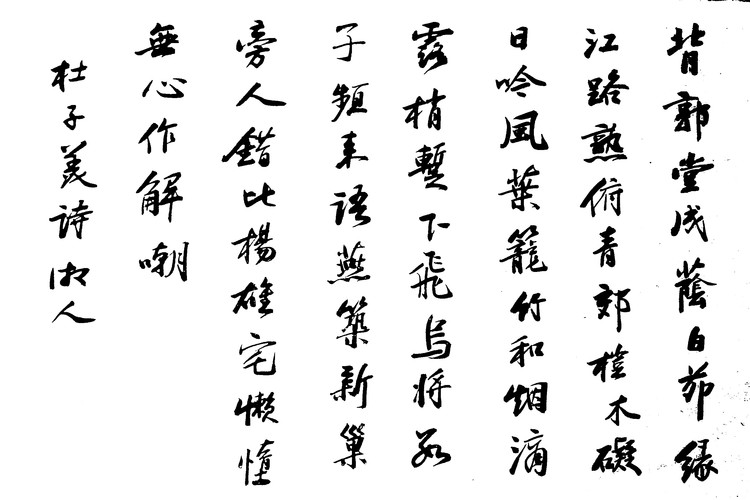 背郭堂成蔭白茆緣
江路熟俯青郊榿木礙
日吟風葉籠竹和烟滴
露梢暫下飛烏將數
子頻來語燕築新巢
旁人錯比楊雄宅懶惰
無心作解嘲
杜子美詩人